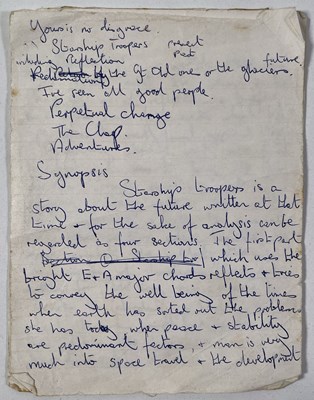 Yours is no disgrace.
Starship troopers present
including Reflection past future.
by the Gt Old one or the glaciers.
I've seen all good people.
Perpetual change
The Clap.
Adventures.
Synopsis
Starship troopers is a
story about the future written at that
time & for the sake of analysis can be
regarded as four sections. The first part
which uses the
bright E & A major chords reflects & tries
to convey the well being of the times
when earth has sorted out the problems
she has today when peace & stability
are predominant factors, & man is very
much into space travel & the development